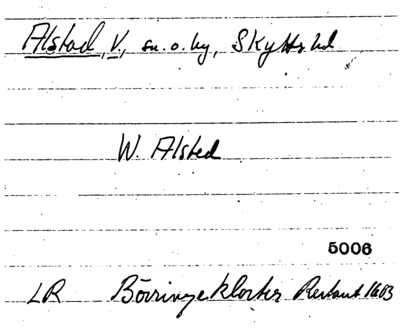 Alstad, V., sn. o. by, Skytts hd
W. Alsted
5006
LR Börringekloster Restant 1603